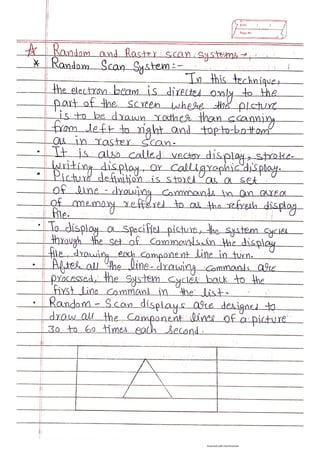 A Random and Raster scan systems →
* Random Scan System :-
In this technique,
the electron beam is directed only to the
part of the screen where the picture
is to be drawn rather than scanning
from left to right and top to bottom
as in raster scan.
• It is also called vector display, stroke-
writing display, or calligraphic display.
• Picture definition is stored as a set
of line-drawing commands in an area
of memory reffered to as the refresh display
file.
• To display a specified picture, the system cycles
through the set of commands in the display
file, drawing each component line in turn.
• After all the line-drawing commands are
processed, the system cycles back to the
first line command in the list.
• Random-Scan displays are designed to
draw all the component lines of a picture
30 to 60 times each second.